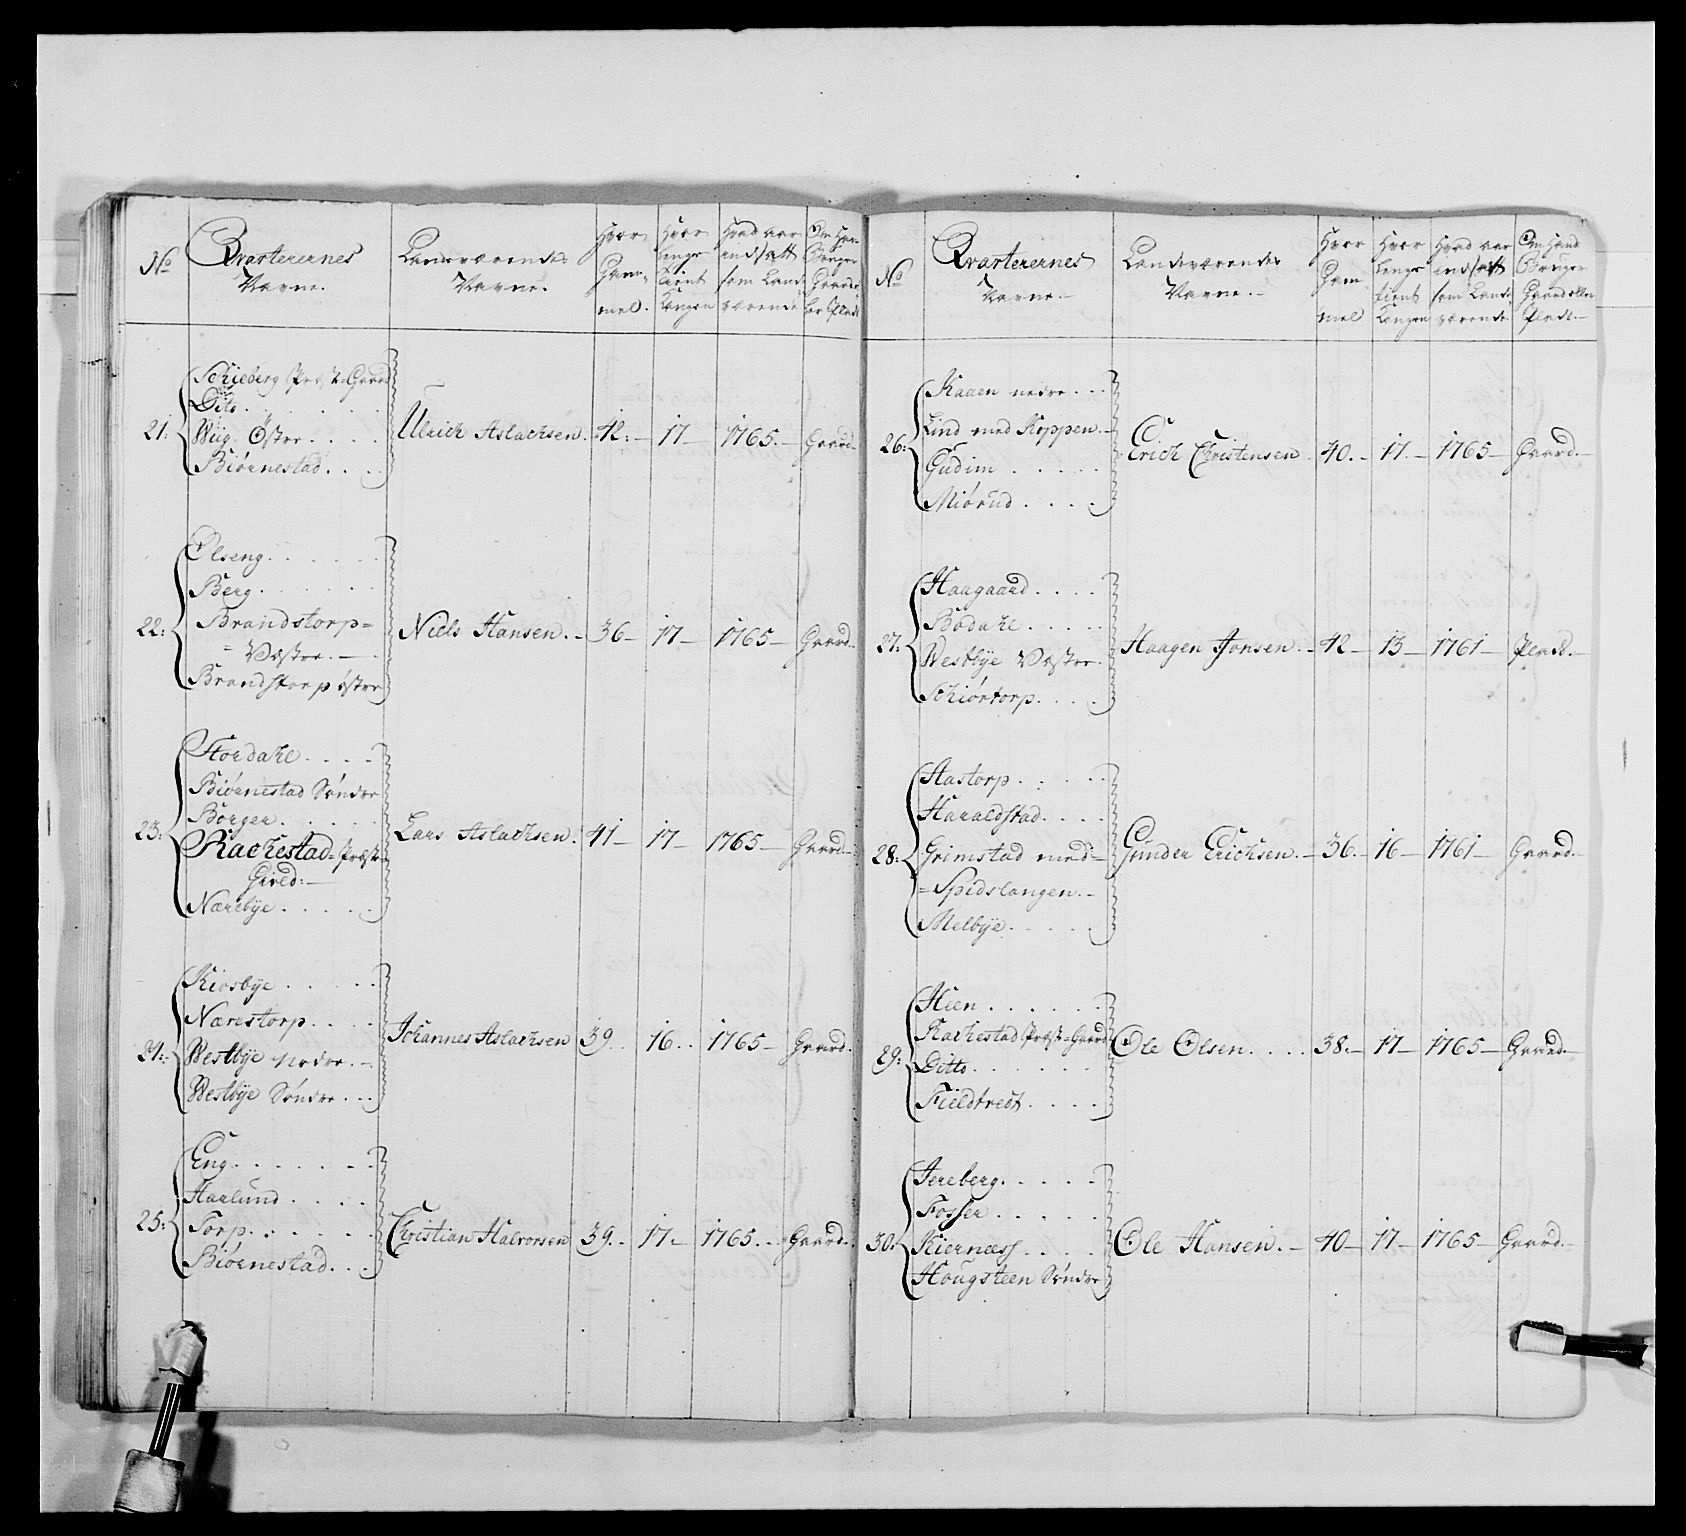 No
Qvarterernes
Navne.
Landeværendes
Navne.
Hvor
Gam-
mel.
Hvor
lenge
tient
Kongen
Hvad aar
indsatt
som Land
værende
Om Han
Bruger
Gaard
ler Plads
21:
Schieberg Præst-Gaard
Dito
Wiig Østre
Biørnestad
Ulrich Aslachsen. 42. 17 1765. Gaard
22:
Olseng
Berg
Brandstorp=
= Væstre.
Brandstorp østre
Niels Hansen. 36 17 1765 Gaard
23:
Stordahl
Biørnestad Søndre
Børger
Rackestad Præste
Gield:
Nærebye
Lars Aslachsen. 41 17 1765 Gaard
24:
Kiosbye
Nærestorp
Westbye Nedre
Westbye Søndre
Johannes Aslachsen 39. 16. 1765 Gaard
25:
Eng
Harlund
Torp
Biørnestad
Christian Halvorsen 39. 17. 1765. Gaard
No
Qvarterernes
Navne.
Landeværendes
Navne.
Hvor
Gam
mel
Hvor
lenge
tient
Kongen
Hvad aar
indsatt
som Land
værende
Om Hand
Bruger
Gaard eller
Plads.
26:
Kaaen nedre
Lind med Koppen
Gudim
Miørud
Erich Christensen 40. 17. 1765 Gaard.
27:
Haagaard
Bødahl
Westbye Væstre
Schiørtorp
Haagen Jonsen. 42 13 1761 Plads.
28:
Aastorp
Haraldstad
Grimstad med
= Spidslangen.
Melbye
Gunder Erichsen. 36. 16 1761 Gaard.
29:
Hien
Rackestad Præst-Gaard
Ditto
Fieldtvedt
Ole Olsen 38. 17 1765 Gaard.
30:
Jereberg
Fosser
Kiernæss
Hougsteen Søndre
Ole Hansen. 40 17 1765 Gaard.